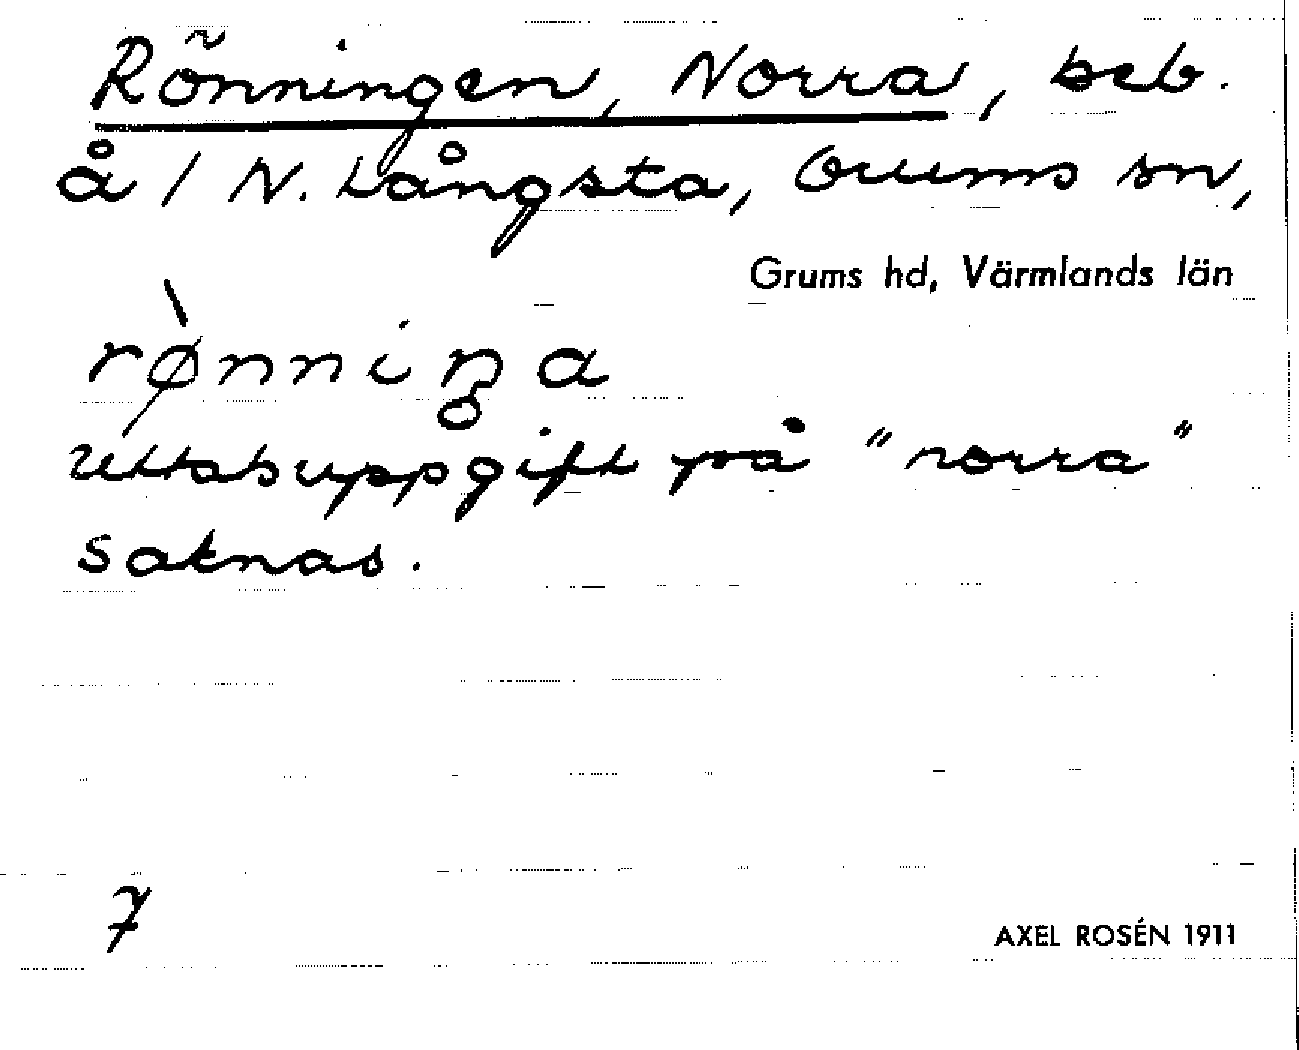 Rönningen, Norra, beb.
å 1 N. Långsta, Grums sn,
Grums hd, Värmlands län
rø̀nniŋ̥a
Uttalsuppgift på "norra"
saknas.
7
AXEL ROSÉN 1911